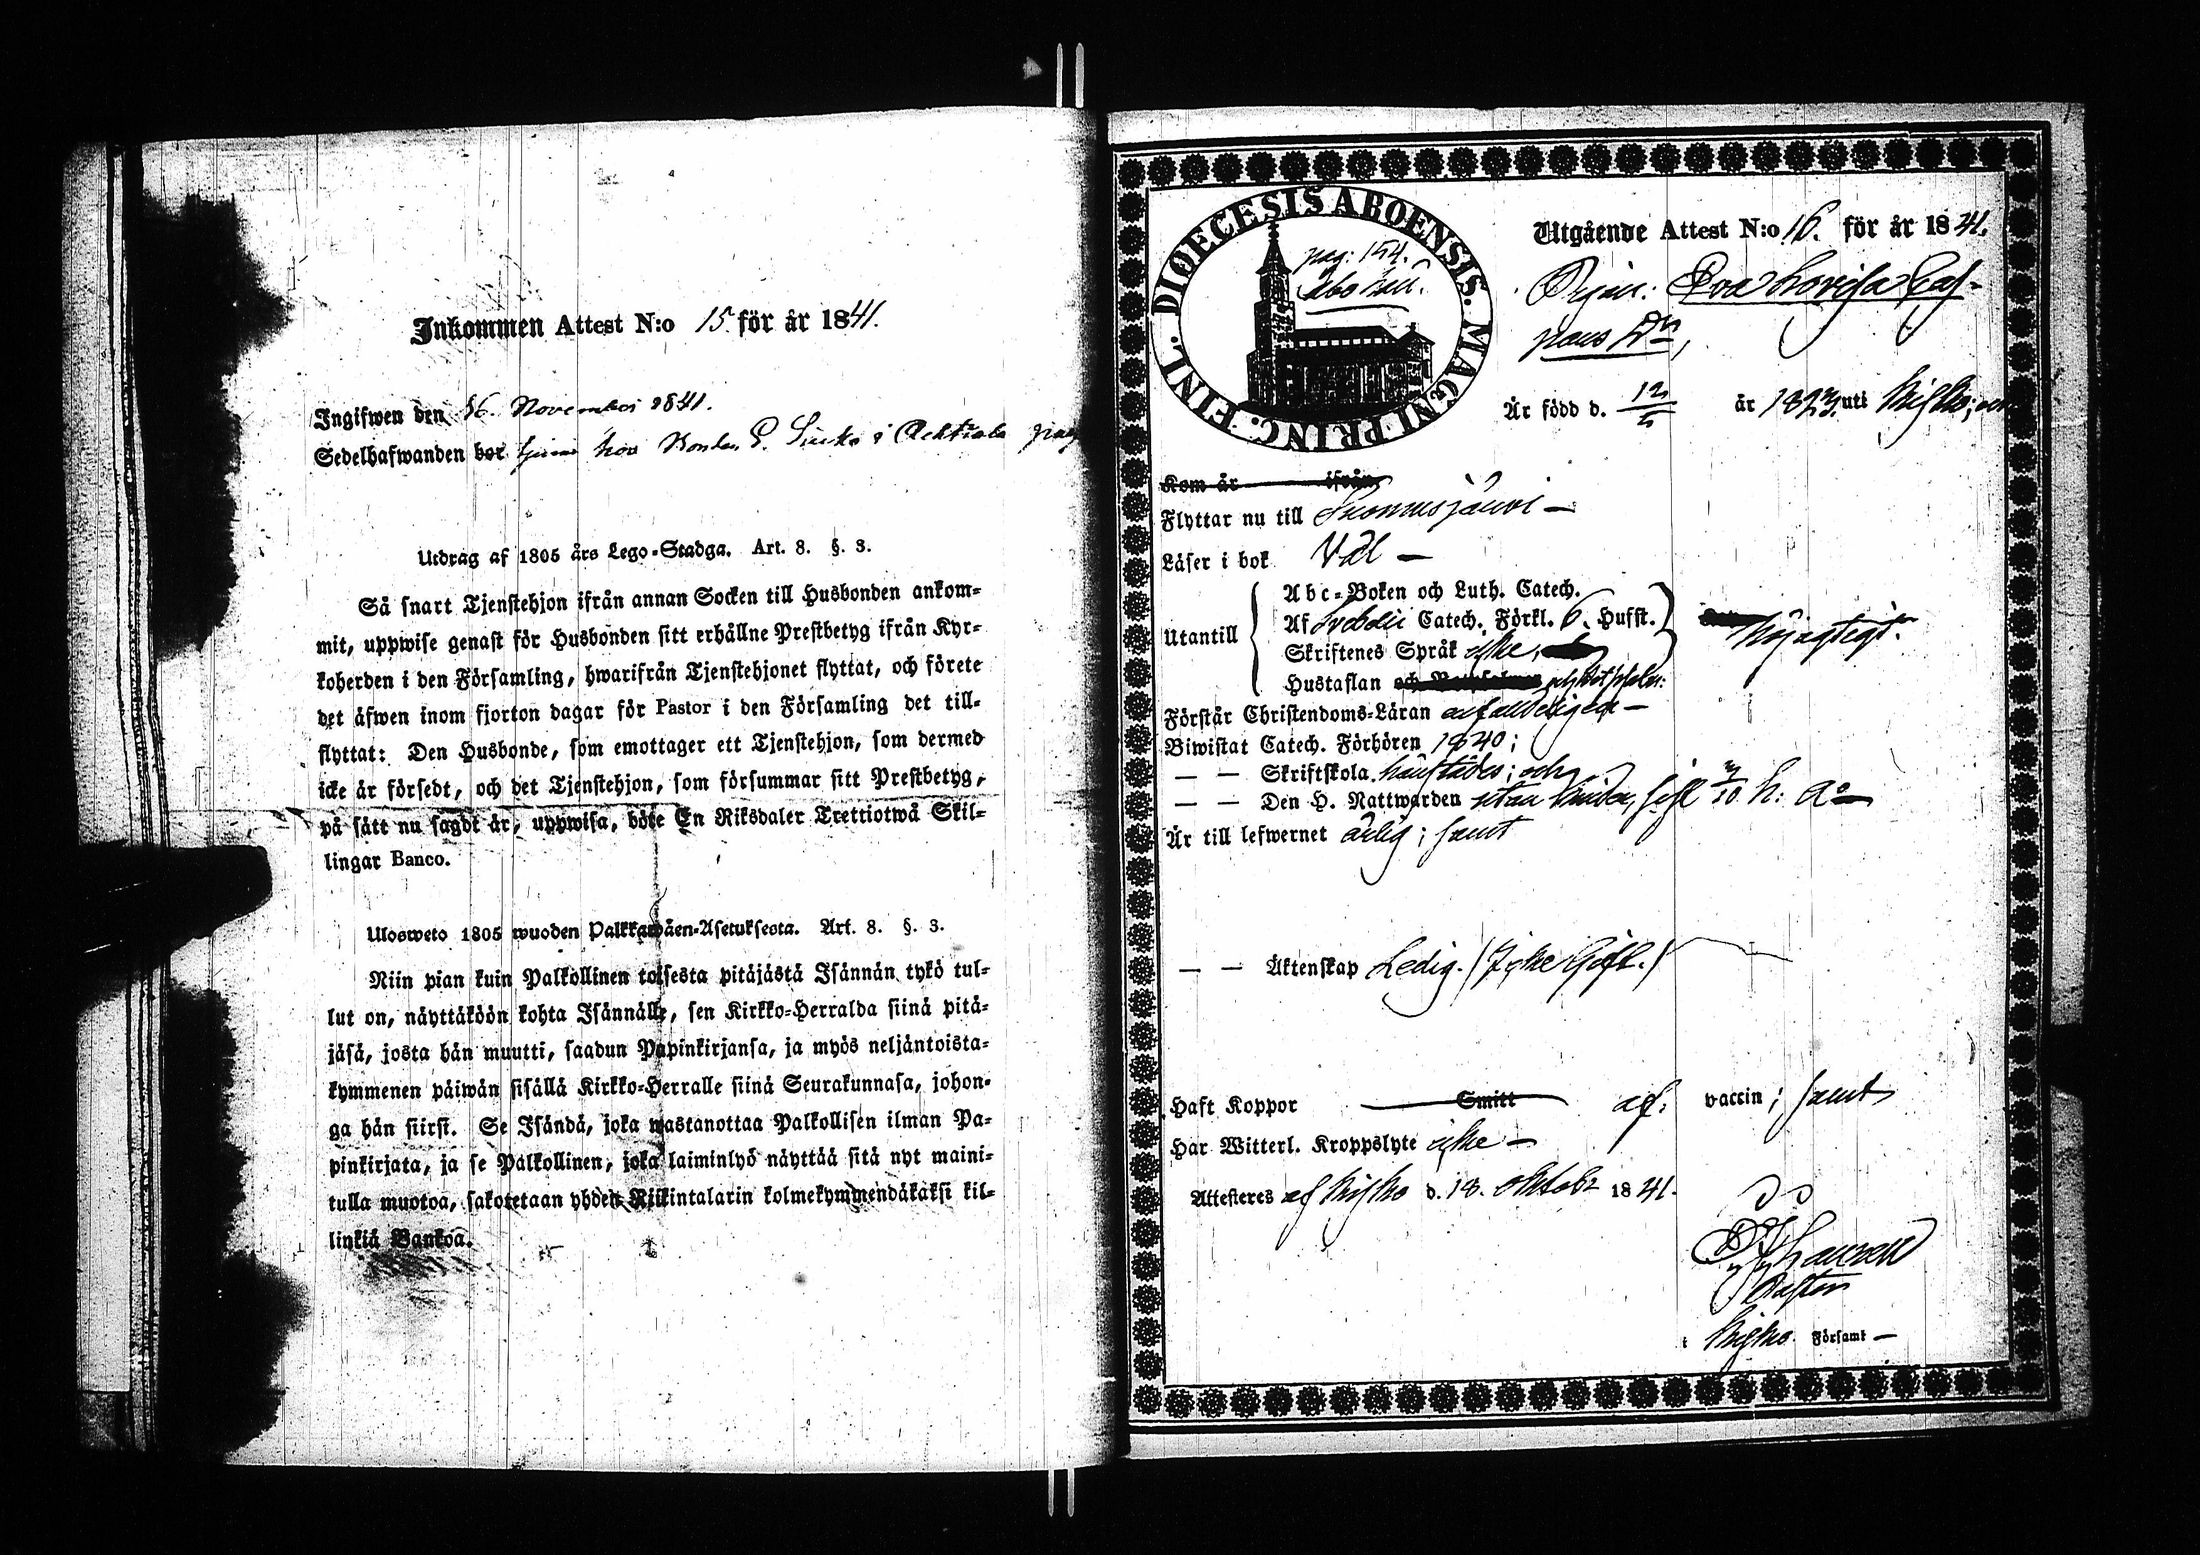 Inkommen Attest N:o 15 för år 1841.
Ingifwen den 16. November 1841.
Sedelhafwanden bor hos Bonden i
Utdrag af 1805 års Lego-Stadga. Art. 8. §. 3.
Så snart Tjenstehjon ifrån annan Socken till Husbonden ankom-
mit, uppwise genast för Husbonden sitt erhållne Prestbetyg ifrån Kyr-
koherden i den Församling, hwarifrån Tjenstehjonet flyttat, och förete
det äfwen inom fjorton dagar för Pastor i den Församling det till-
flyttat: Den Husbonde, som emottager ett Tjenstehjon, som dermed
icke är försedt, och det Tjenstehjon, som försummar sitt Prestbetyg,
på sätt nu sagdt är, uppwisa, böte En Riksdaler Trettiotwå Skil-
lingar Banco.
Ulosweto 1805 wuoden Palkkawäen-Asetuksesta. Art. 8. §. 3.
Niin pian kuin Palkollinen toisesta pitäjästä Isännän tykö tul-
lut on, näyttäköön kohta Isännälle, sen Kirkko-Herralda siinä pitä-
jäsä, josta hän muutti, saadun Papinkirjansa, ja myös neljäntoista-
kymmenen päiwän sisällä Kirkko-Herralle siinä Seurakunnasa, johon-
ga hän siirst. Se Isändä, joka wastanottaa Palkollisen ilman Pa-
pinkirjata, ja se Palkollinen, joka laiminlyö näyttää sitä nyt maini-
tulla muotoa, sakotetaan yhden Riikintalarin kolmekymmendäkäksi kil-
linkiä Bankoa.
DIOECESIS ABOENSIS. MAGNI PRINC. FINL.
pag: 154.
Utgående Attest N:o 16. för år 1841.
Pigan: Eva Lovisa Cas-
pers Dr,
Är född d. 12/5 år 1823. uti Kisko; och
Kom år ifrån
Flyttar nu till Suomusjärvi —
Läser i bok Väl —
Utantill
Abc-Boken och Luth. Catech.
Af Svebelii Catech. Förkl. 6. Hufst.
Skriftenes Språk icke,
Hustaflan och
Nöjagtigt.
Förstår Christendoms-Läran enfaldeligen —
Biwistat Catech. Förhören 1840;
— — Skriftskola och
— — Den H. Nattwarden utan hinder, sist h: a:
Är till lefwernet ärlig; samt
— — Äktenskap Ledig. (Icke Gift.)
Haft Koppor Smitt af: vaccin; samt
Har Witterl. Kroppslyte icke —
Attesteres af Kisko d. 18. Oktober 1841.
Pastor
i Kisko. Församl —